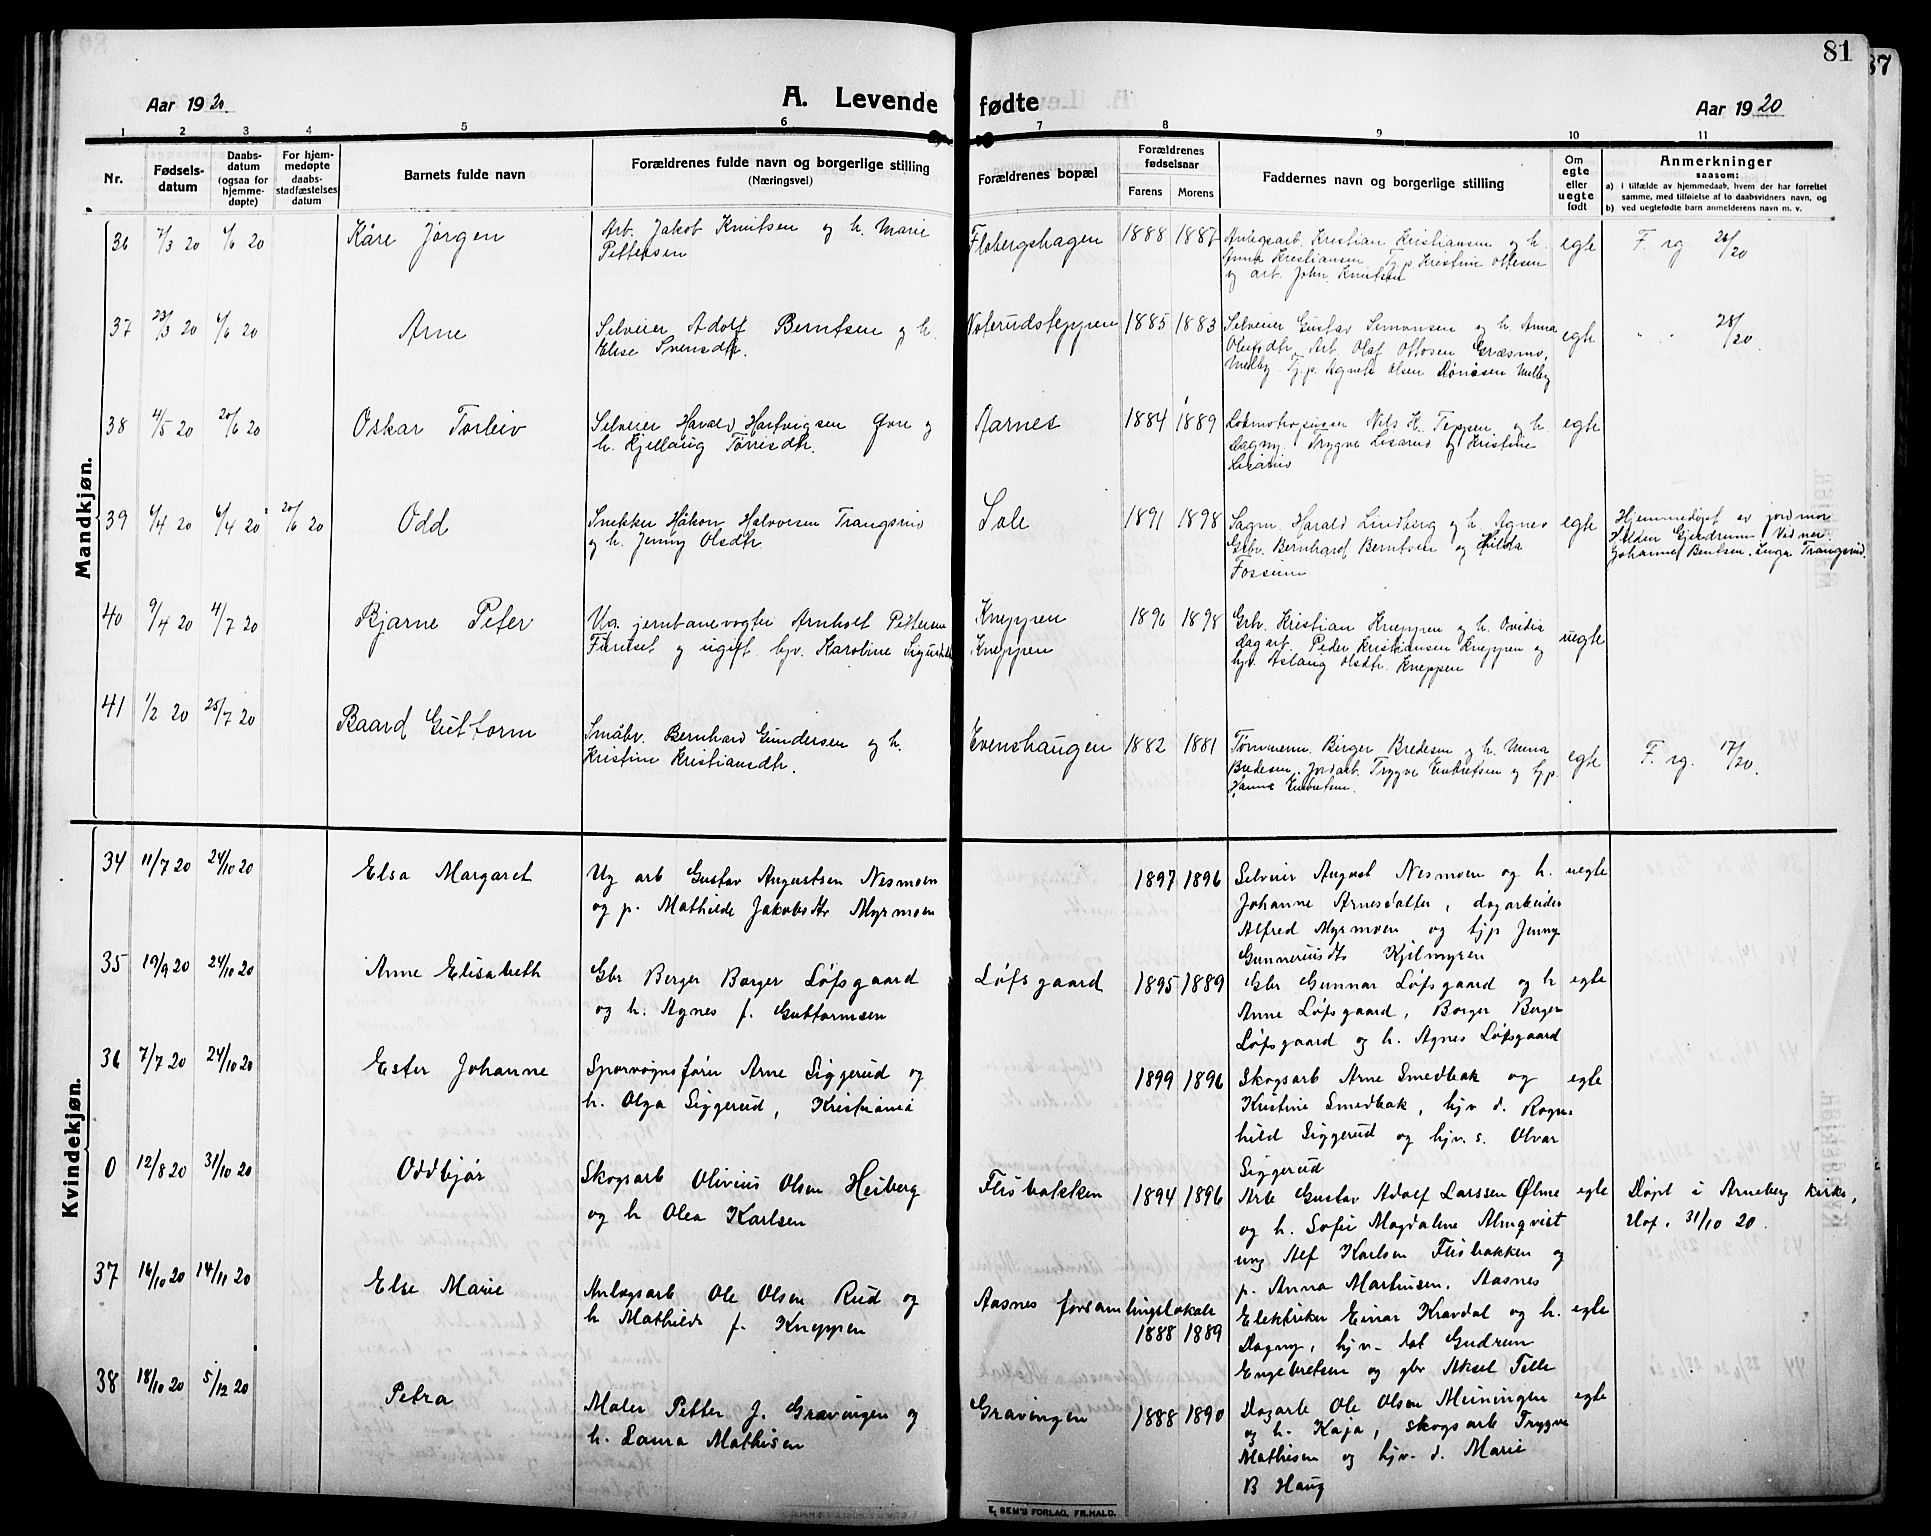 81
87
Aar 1920
A. Levende fødte
Aar 1920
1 2 3 4 5 6 7 8 9 10 11
Nr.
Fødsels-
datum
Daabs-
datum
(ogsaa for
hjemme-
døpte)
For hjem-
medøpte
daabs-
stadfæstelses
datum
Barnets fulde navn
Forældrenes fulde navn og borgerlige stilling
(Næringsvei)
Forældrenes bopæl
Forældrenes
fødselsaar
Farens Morens
Faddernes navn og borgerlige stilling
Om
egte
eller
uegte
født
Anmerkninger
saasom:
a) i tilfælde av hjemmedaab, hvem der har forrettet
samme, med tilføielse af to daabsvidners navn, og
b) ved uegtefødte barn anmelderens navn m. v.
Mandkjøn.
36 7/3 20 6/6 20 Kåre Jørgen
Arb. Jakob Knutsen og h. Marie
Pettersen
Flobergshagen 1888 1887
Anlegsarb. Kristian Kristiansen og h.
Anna Kristiansen Tj.p Kristine Ottesen
og arb. John Knutsen
egte F. rg 26/20
37 23/3 20 6/6 20 Arne
Selveier Adolf Berntsen og h.
Elise Svensdtr.
Noterudsteppen 1885 1883
Selveier Gustav Simonsen og h. Anna
Arb. Olaf Ottosen Græsmo,
Melby Tj.p. Agnete Olsen Melby
egte " " 28/20.
38 4/5 20 20/6 20 Oskar Torleiv
Selveier Harald Hartvigsen Øvre og
h. Kjellaug Tørrisdtr.
Aarnes 1884 1889
Nels H. Teppen og h.
Dagny. Trygve Lisarud og Kristine
egte
39 6/4 20 6/4 20 20/6 20 Odd
Snekker Håkon Halvorsen Trangsrud
og h. Jenny Olsdtr.
Sole 1891 1898
Sagm. Harald Lindberg og h. Agnes
Gbr. Bernhard Berntsen og Hilda
Fossum
egte
Hjemmedøpt av jordmor
Hilda Gjerdrum. Vidner:
Johanne Bentsen. Inga Trangsrud.
40 9/4 20 4/7 20 Bjarne Peter
Ug. jernbanevogter Arnholt Pettersen
Furuset og ugift hjv. Karoline Sigurdsdtr
Kneppen
Kneppen
1896 1898
Gbr. Kristian Kneppen og h. Ovidia
dagarb. Peder Kristiansen Kneppen og
hjv. Aslaug Olsdtr. Kneppen
uegte
41 1/2 20 25/7 20 Baard Guttorm
Småbr. Bernhard Gundersen og h.
Kristine Kristiansdtr.
Evenshaugen 1882 1881
Tømmerm. Birger Bredesen og h. Mina
Bredesen. Jordarb. Trygve Embretsen og tj.p.
Hanna Embretsen.
egte F. rg. 17/20.
Kvindekjøn.
34 11/7 20 24/10 20 Elsa Margaret
Ug arb Gustav Augustsen Nesmoen
og p. Mathilde Jakobsdtr Myrmoen
1897 1896
Selveier August Nesmoen og h.
Johanne Arnesdatter, dagarbeider
Alfred Myrmoen og tjp Jenny
Gunneriusdt Kjilmyren
uegte
35 19/9 20 24/10 20 Anne Elisabeth
Gbr Berger Borger Løfsgaard
og h. Agnes f. Guttormsen
Løfsgaard 1895 1889
Gbr Gunnar Løfsgaard og h
Anne Løfsgaard, Borger Berger
Løfsgaard og h. Agnes Løfsgaard
egte
36 7/7 20 24/10 20 Ester Johanne
Sporvognsfører Arne Siggerud og
h. Olga Siggerud, Kristiania
1899 1896
Skogsarb Arne Smedbak og
Kristine Smedbak, hjv d. Ragn-
hild Siggerud og hjv. s. Olvar
Siggerud
egte
0 12/8 20 31/10 20 Oddbjør
Skogsarb Olivius Olsen Heiberg
og h Olea Karlsen
Flisbakken 1894 1896
Arb Gustav Adolf Larssen Ølme
og h. Sofie Magdaline Almqvist
ung Alf Karlsen Flisbakken og
p. Anna Marthinsen. Aasnes
egte
Døpt i Arneberg kirke,
Hof. 31/10 20.
37 16/10 20 14/11 20 Else Marie
Anlægsarb Ole Olsen Rud og
h Mathilde f. Kneppen
Aasnes forsamlingslokale
1888 1889
Elektriker Einar Kravdal og h.
Dagny, hjv. dat Gudrun
Engebretsen og gbr Aksel Telle
egte
38 18/10 20 5/12 20 Petra
Maler Petter J. Gravingen og
h. Laura Mathisen
Gravingen 1888 1890
Dagarb Ole Olsen Meiningen
og h. Kaja, skogsarb Trygve
Mathisen og hjv. d. Marie
B Haug
egte
E. SEM'S FORLAG, FR.HALD.